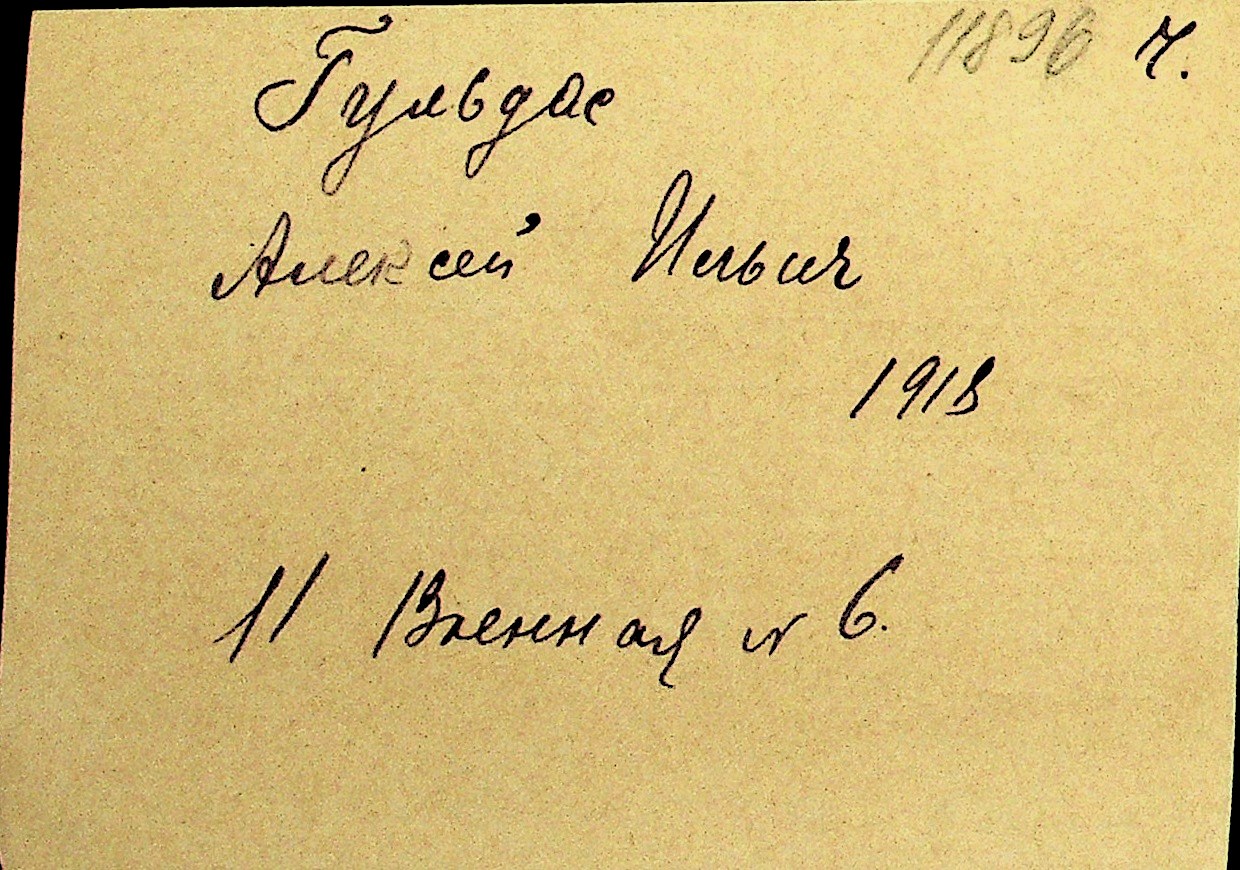 11896 ч.
Гульдас
Алексей Ильич
1918
11 Военная № 6.